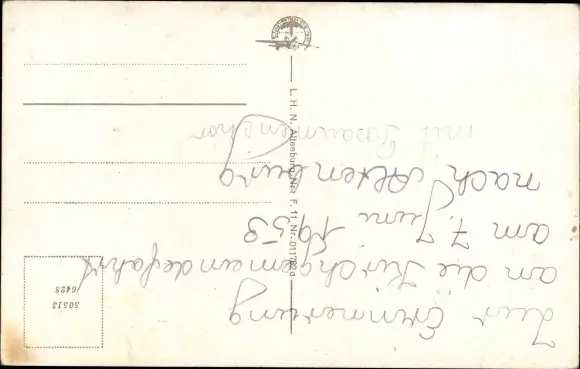 Zur Erinnerung
an die Kirchgemeindefahrt
am 7. Juni 1953
nach Altenburg
mit Posaunenchor
L. H. N. Altenburg
F. 11 Nr. 011762 a
50513
6428